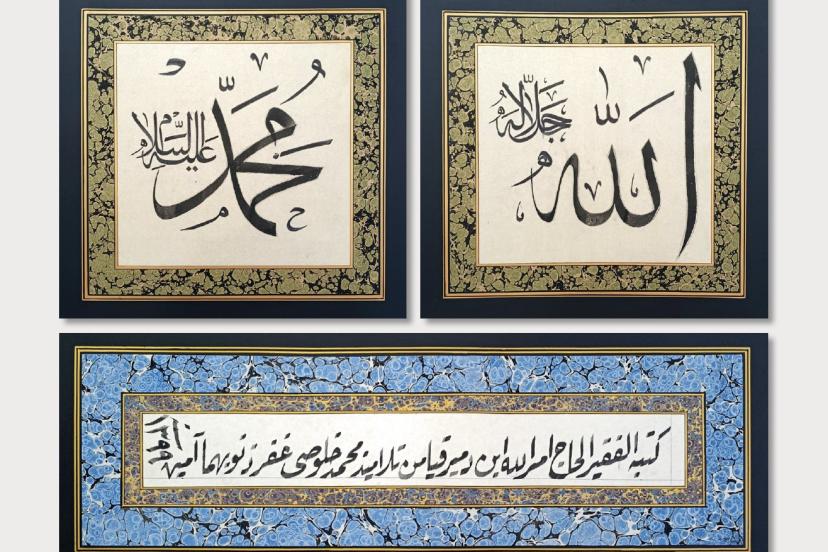 الله جل جلاله
محمد عليه السلام
كتبه الفقير الحاج امر الله ابن دميرقيا من تلاميذ محمد خلوصي غفر ذنوبهما آمين